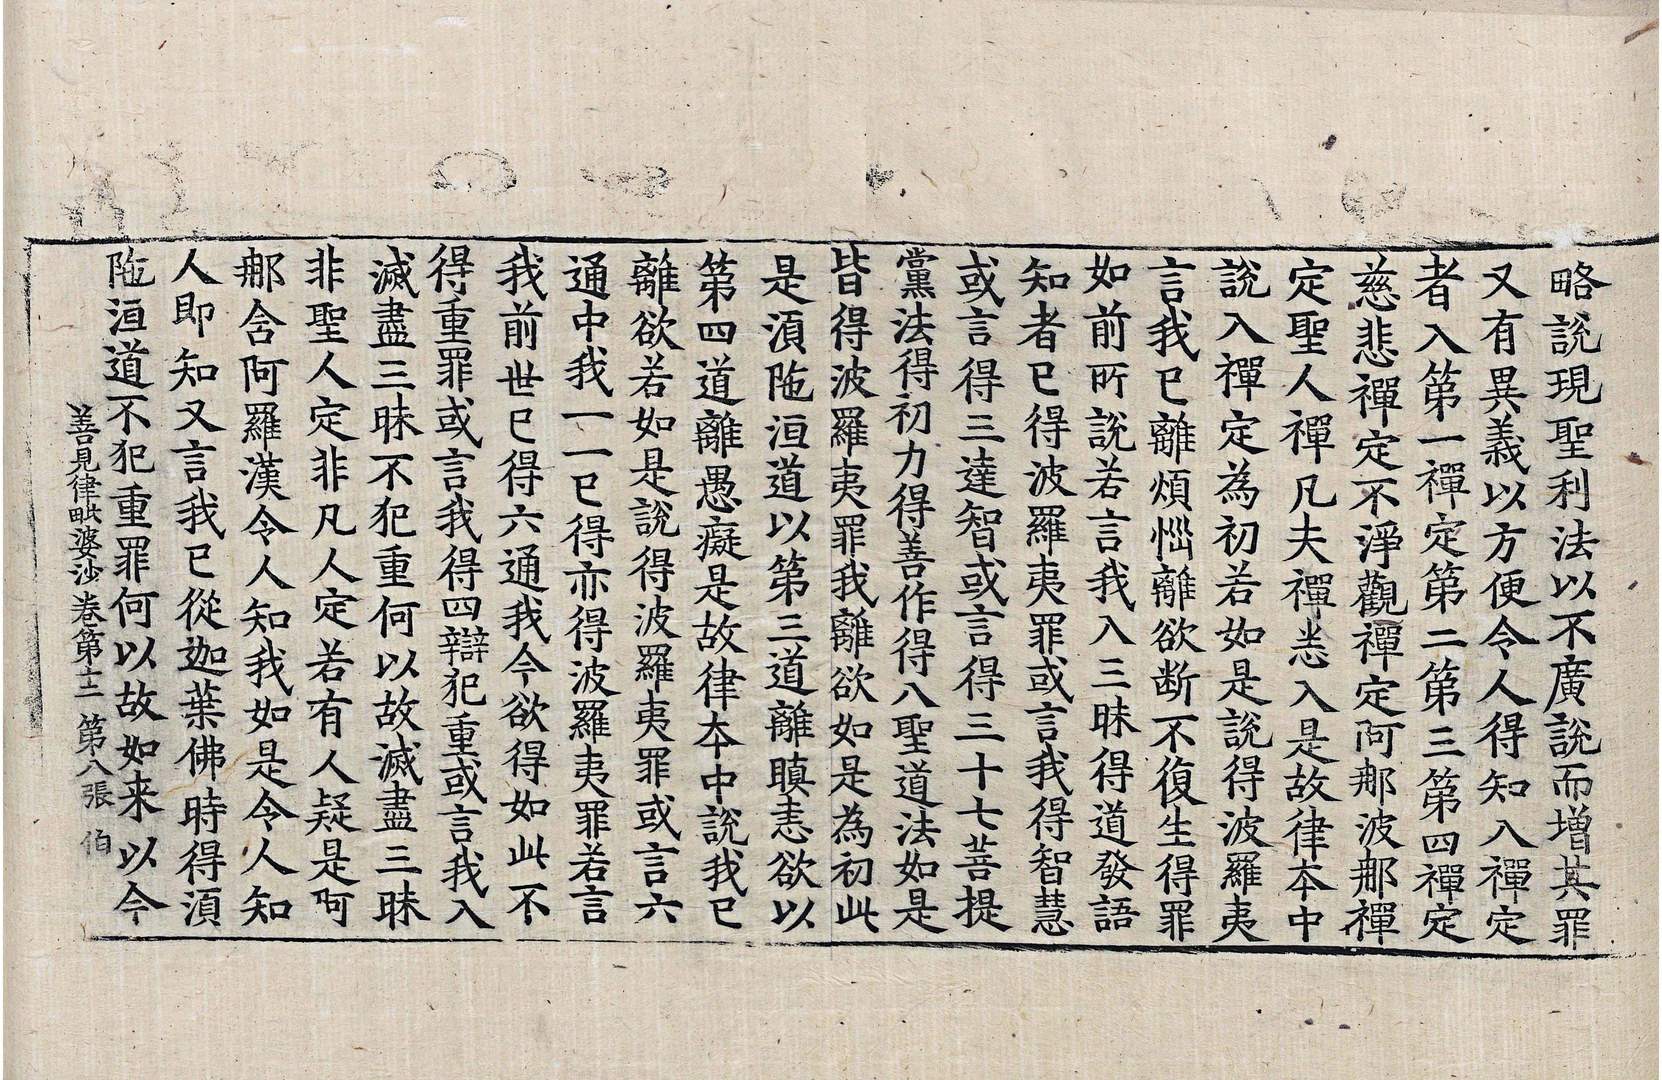 略說現聖利法以不廣說而增其罪
又有異義以方便令人得知入禪定
者入第一禪定第二第三第四禪定
慈悲禪定不淨觀禪定阿那波那禪
定聖人禪凡夫禪悉入是故律夲中
說入禪定為初若如是說得波羅夷
言我已離煩惱離欲断不復生得罪
如前所說若言我入三昧得道發語
知者已得波羅夷罪或言我得智慧
或言得三達智或言得三十七菩提
黨法得初力得善作得八聖道法如是
皆得波羅夷罪我離欲如是為初此
是湏陁洹道以第三道離瞋恚欲以
第四道離愚癡是故律夲中說我已
離欲若如是說得波羅夷罪或言六
通中我一一已得亦得波羅夷罪若言
我前世已得六通我今欲得如此不
得重罪或言我得四辯犯重或言我入
滅盡三昧不犯重何以故滅盡三昧
非聖人定非凡人定若有人疑是阿
那含阿羅漢令人知我如是令人知
人即知又言我已從迦葉佛時得湏
陁洹道不犯重罪何以故如来以今
善見律毗婆沙卷第十二 第八張 伯